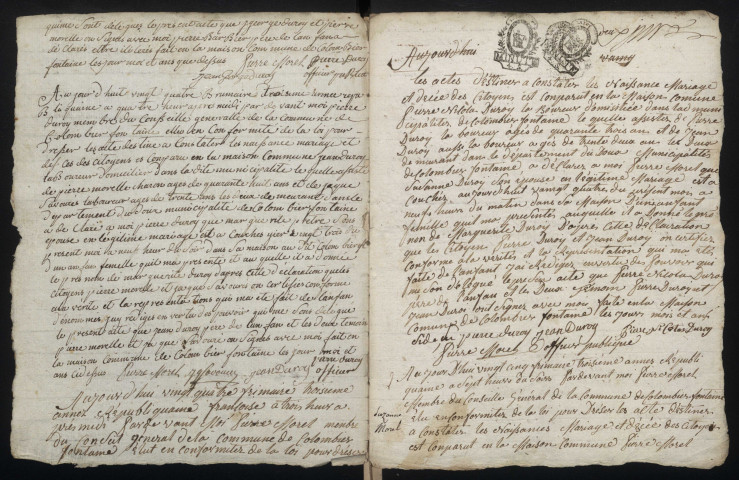 quine sont dele ques le présent acte que pierre duroy et pierre
morelle ou Signés avec moi pierre
de Clarés etbre delécés fait en la maison Commune de Colombier
fontaine les jour moi et ans que dessus Pierre Morel pierre Duroy
jean duroy officier publice
Au jour d'hui vingt quatre Brumaire troisieme année repu
blicaine a quatre heur apres midi par de vant moi pierre
duroy menbres du Conseille generalle de la Commune de
Colom bier fon taine elus en Conformité de la loi pour
dresser les actes des tine a Constater les naissance mariage et
de Ces des citoyens est Conparu en la maison Commune jean duroy
labsoureur domicilier dans la dite municypalité le quelle assisté
de pierre morelle charon ages de quarante huit ans et de jaque
labsoureur ages de trente ans les deux de meurant dans le
departement du doux municypalité de Colom bier fontaine
a de Claré a moi pierre duroy que marguerite petre Son
epouse en legitime mariage est a Couchés yier vingt trois du
present moi a neuf heur du Soir dans sa maison au dit Colom bier
d'un anfan femelle quil ma presenté et au quelle il a donné
le pres nom de marguerite duroy d'apres cette declaration que les
citoyens pierre morelle et jaque ont Certifies Conforme
a la verité et la representation qui ma eté fait de l'anfan
denommer jay rediges en vertu des pouvoir qui me sont delegue
le present acte que jean duroy pere de l'an fan et les deux temoin
pierre morelle et ja que on Signes avec moi fait en
la maison Commune de Colom bier fontaine les jour moi et
ans de Ssus Pierre Morel jean Duroy pierre duroy
officier
Aujourd'hui vingt quatre frimaire troisieme
année Republiquaine françoise a trois heur a
pres midi Pardevant Moi Pierre Morel menbre
du Conseil general de la Commune de Colombier
fontaine elut en Conformité de la loi pour dresser
Aujourd'hui
les actes destiner a Constater les Naissance Mariage
et decée des Citoyens est Conparut en la Maison Commune
Pierre Nicolas Duroy laboureur domestiée dans la di muni
cypalité de Colombier fontaine le quelles assistez de Pierre
Duroy laboureux agés de quarante trois ans et de jean
Duroy aussi laboureux agés de trente deux ans les deux
demurant dans le departement du doux Municipalitée
de Colombier fontaine a déclarés a moi Pierre Morel que
Susanne Duroy Son épouse en legitime Mariage est a
Couchez aujourd'huit vingt quatre du present mois a
neufs heure du matin dans sa Maison D'un enfant
femelle quil ma presentée auquelle il a donné le pré
nom de Marguerite Duroy D'apres Cette déclaration
que les Citoyen Pierre Duroy et jean Duroy on certifiez
Conforme a la véritée et la Représentation qui ma etée
faite de l'enfant j'ai Redigez en vertu de Pouvoir qui
me Son délégué le présent acte que Pierre Nicolas Duroy
pere de l'anfan et les Deux témoin Pierre Duroy et
jean Duroy ont Signez avec moi fait en la Maison
Commune de Colombier fontaine les jour mois et ans
Sidesu pierre duroy jean Duroy Pierre Nicolas Duroy
Pierre Morel officier publique
Aujourd'hui vingt cinq frimaire troisieme année Republi
quaine a Sept heure du Soir Pardevant moi Pierre Morel
Membre du Conseille General de la Commune de Colombier fontaine
elu en Conformité de la loi pour Dresser les acte destiner
a Constater les Naissances Mariage et decée des Citoyens
est Conparut en la Maison Commune Pierre Morel
Suzanne
Morel